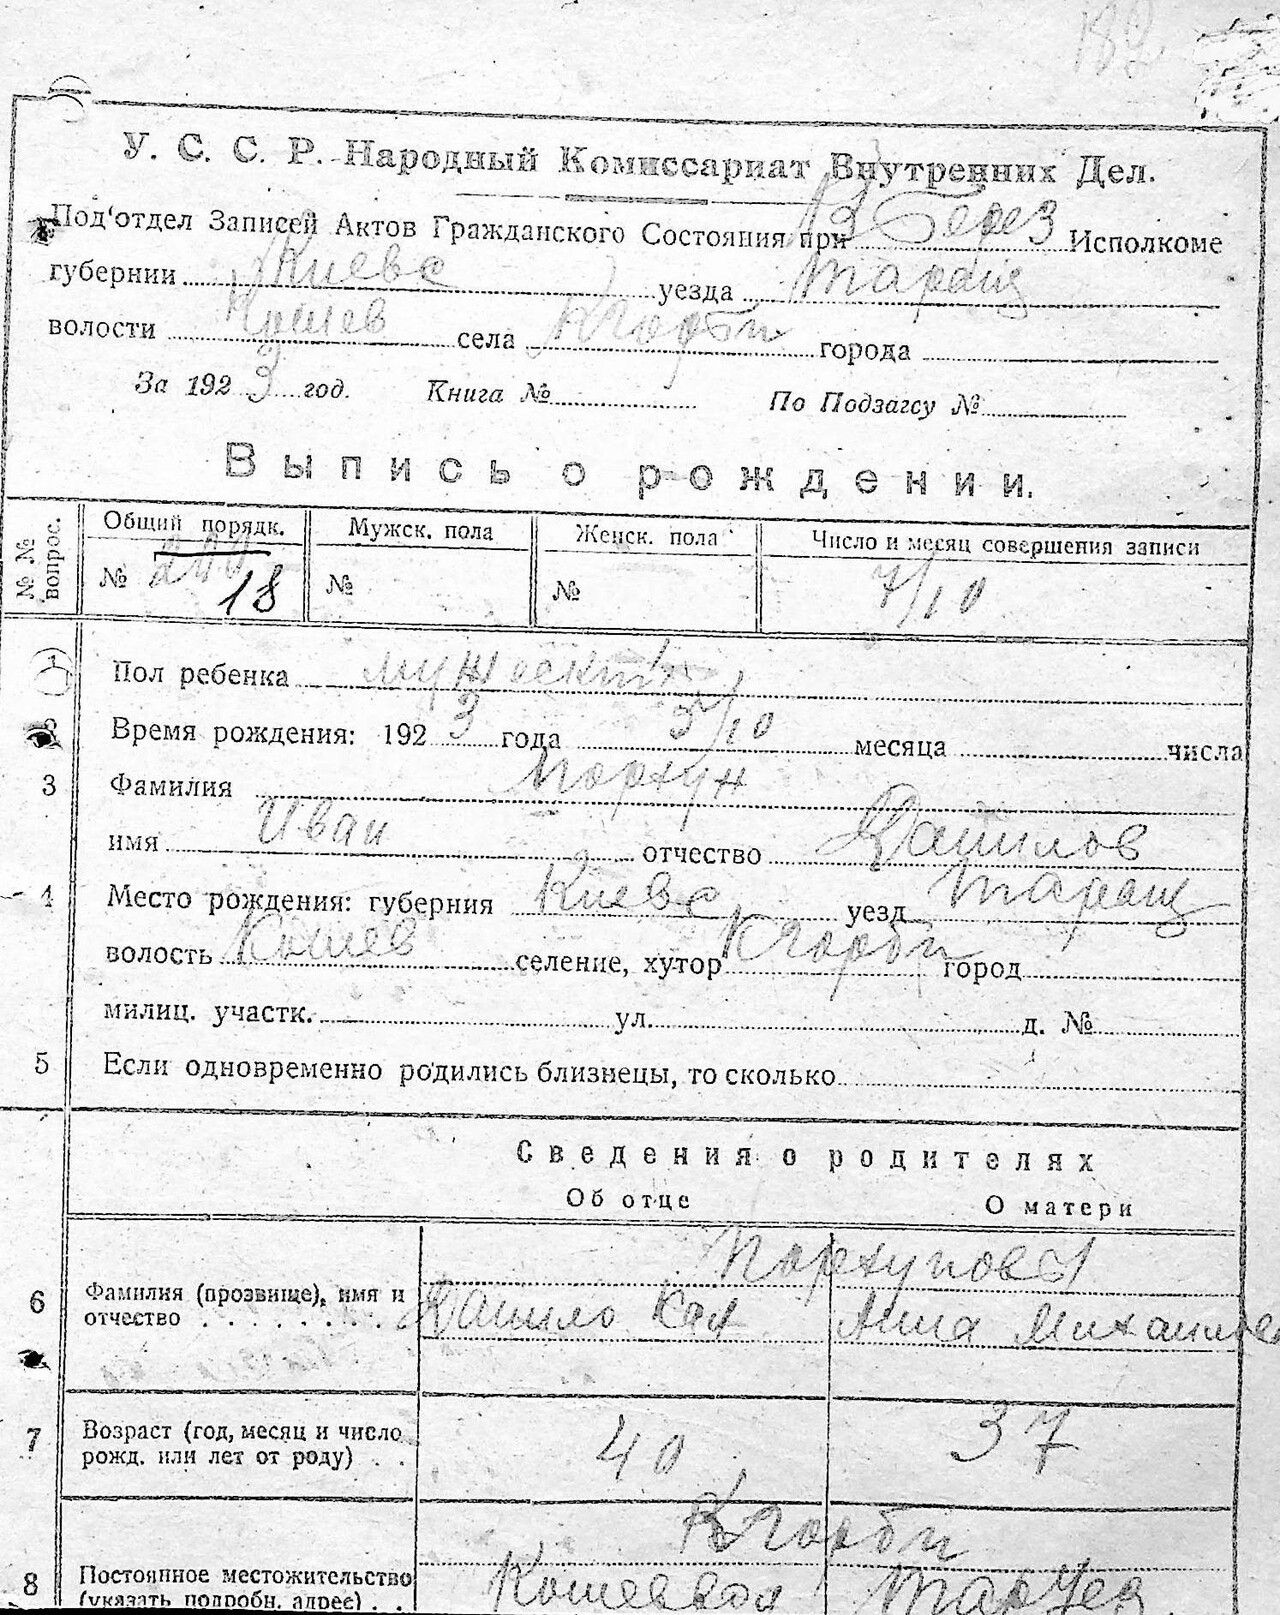 У. С. С. Р. Народный Комиссариат Внутренних Дел.
Под'отдел Записей Актов Гражданского Состояния при В Берез Исполкоме
губернии Киевс уезда Таращ
волости Кошев села К Горби города
За 1923 год. Книга № По Подзагсу №
Выпись о рождении.
№ № вопрос. Общий порядк. Мужск. пола Женск. пола Число и месяц совершения записи
№ 18 № № 7/10
1 Пол ребенка
Время рождения: 1923 года 5/10 месяца числа
3 Фамилия Порхун
имя Иван отчество Данилов
4 Место рождения: губерния Киевс уезд Таращ
волость Кошев селение, хутор К Горби город
милиц. участк. ул. д. №
5 Если одновременно родились близнецы, то сколько
Сведения о родителях
Об отце О матери
Порхунов
6 Фамилия (прозвище), имя и отчество Данило Анна Михайлов
7 Возраст (год, месяц и число рожд. или лет от роду) 40 37
К Горби
8 Постоянное местожительство (указать подробн. адрес)